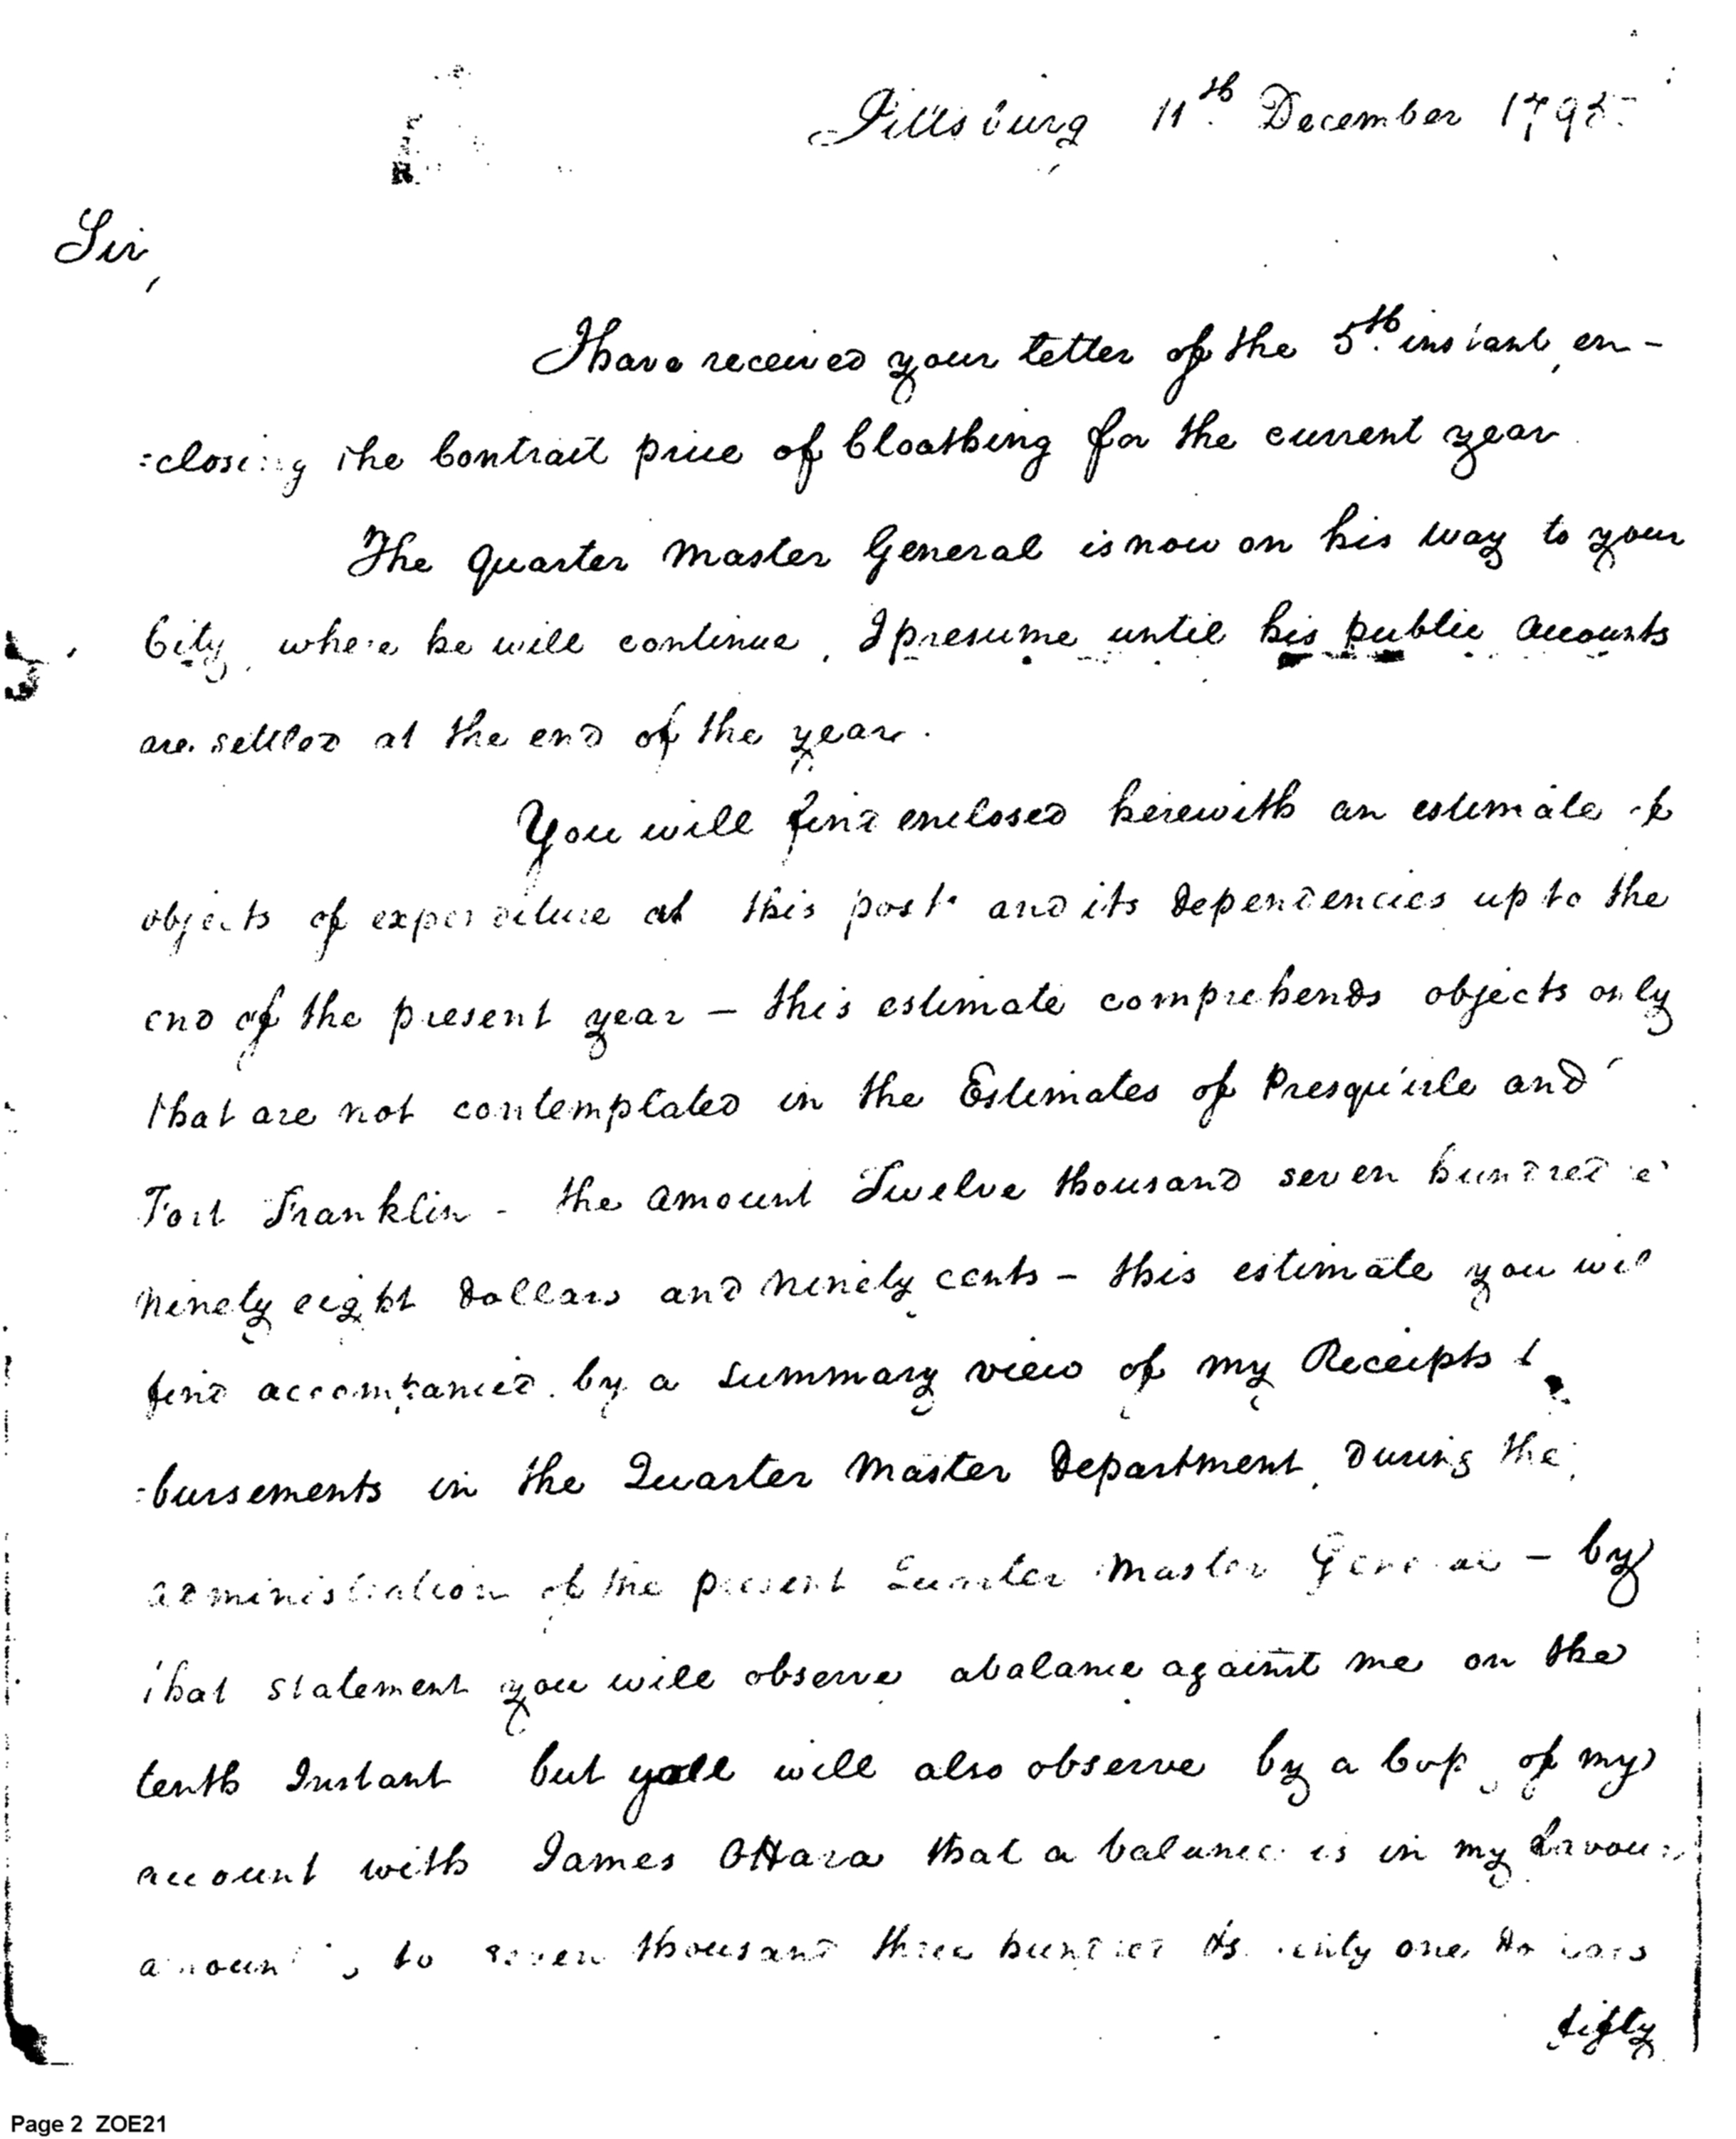 Pittsburg 11th December 1795
Sir,
I have received your letter of the 5th instant, en-
=closing the Contract price of Cloathing for the current year
The Quarter Master General is now on his way to your
City, where he will continue, I presume until his public accounts
are settled at the end of the year.
You will find enclosed herewith an estimate of
objects of expenditure at this post and its dependencies up to the
end of the present year – this estimate comprehends objects only
that are not contemplated in the Estimates of Presqu'isle and
Fort Franklin - the amount Twelve thousand seven hundred &
ninety eight Dollars and ninety cents – this estimate you will
find accompanied by a summary view of my Receipts &
=bursements in the Quarter Master Department, During the
administration of the present Quarter Master General – by
that statement you will observe a balance against me on the
tenth Instant but you will also observe by a Copy of my
account with James OHara that a balance is in my favour
amounting to seven thousand three hundred & one Dollars
fifty
Page 2 ZOE21